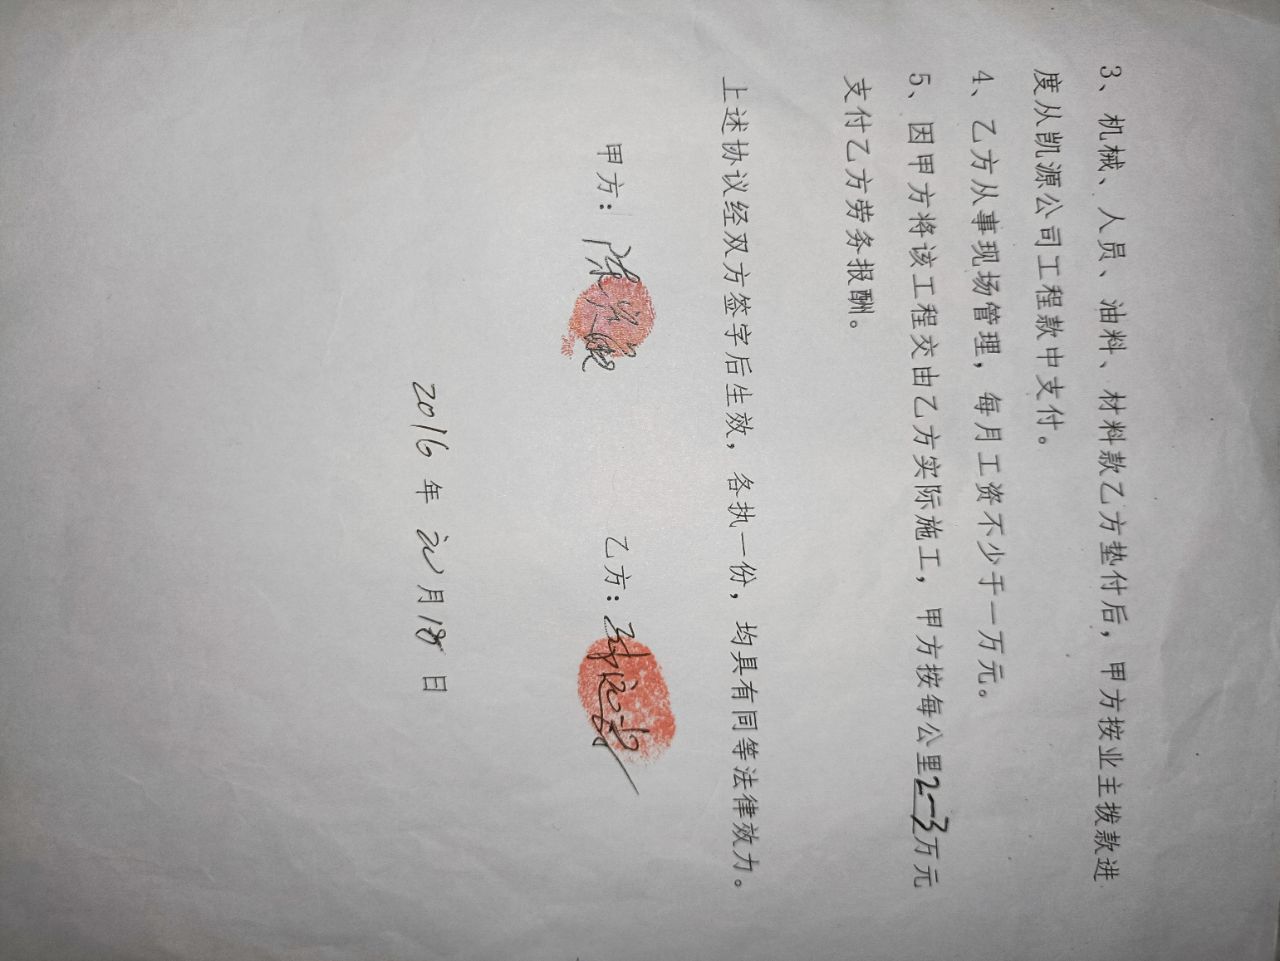 3、机械、人员、油料、材料款乙方垫付后，甲方按业主拨款进
度从凯源公司工程款中支付。
4、乙方从事现场管理，每月工资不少于一万元。
5、因甲方将该工程交由乙方实际施工，甲方按每公里2-3万元
支付乙方劳务报酬。
上述协议经双方签字后生效，各执一份，均具有同等法律效力。
甲方：陈 乙方：
2016年元月18日